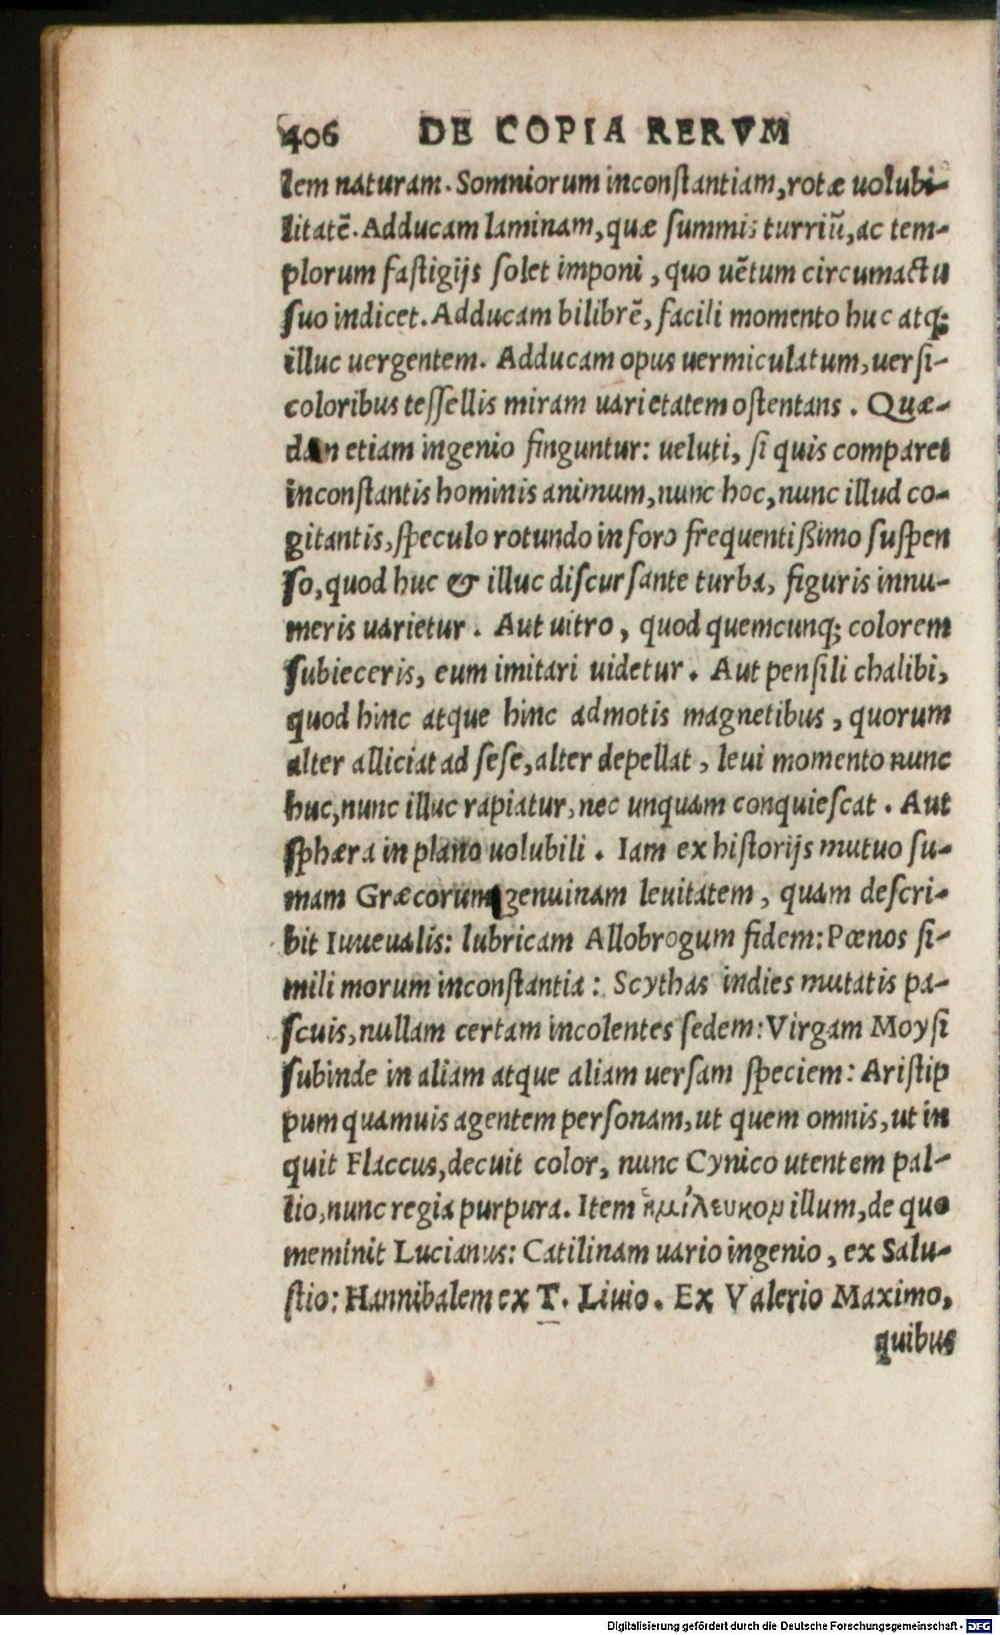 406 DE COPIA RERVM
lem naturam. Somniorum inconſtantiam, rotæ uolubi-
litatē. Adducam laminam, quæ ſummis turriū, ac tem-
plorum faſtigijs ſolet imponi, quo uētum circumactu
ſuo indicet. Adducam bilibrē, facili momento huc atq;
illuc uergentem. Adducam opus uermiculatum, uerſi-
coloribus teſſellis miram uarietatem oſtentans. Quæ-
dan etiam ingenio finguntur: ueluti, ſi quis comparet
inconſtantis hominis animum, nunc hoc, nunc illud co-
gitantis, ſpeculo rotundo in foro frequentißimo ſuſpen
ſo, quod huc & illuc diſcurſante turba, figuris innu-
meris uarietur. Aut uitro, quod quemcunq; colorem
ſubieceris, eum imitari uidetur. Aut penſili chalibi,
quod hinc atque hinc admotis magnetibus, quorum
alter alliciat ad ſeſe, alter depellat, leui momento nunc
huc, nunc illuc rapiatur, nec unquam conquieſcat. Aut
ſphæra in plano uolubili. Iam ex hiſtorijs mutuo ſu-
mam Græcorum genuinam leuitatem, quam deſcri-
bit Iuueualis: lubricam Allobrogum fidem: Pœnos ſi-
mili morum inconſtantia: Scythas indies mutatis pa-
ſcuis, nullam certam incolentes ſedem: Virgam Moyſi
ſubinde in aliam atque aliam uerſam ſpeciem: Ariſtip
pum quamuis agentem perſonam, ut quem omnis, ut in
quit Flaccus, decuit color, nunc Cynico utentem pal-
lio, nunc regia purpura. Item ἡμίλευκον illum, de quo
meminit Lucianus: Catilinam uario ingenio, ex Salu-
ſtio: Hannibalem ex T. Liuio. Ex Valerio Maximo,
quibus
Digitalisierung gefördert durch die Deutsche Forschungsgemeinschaft - DFG